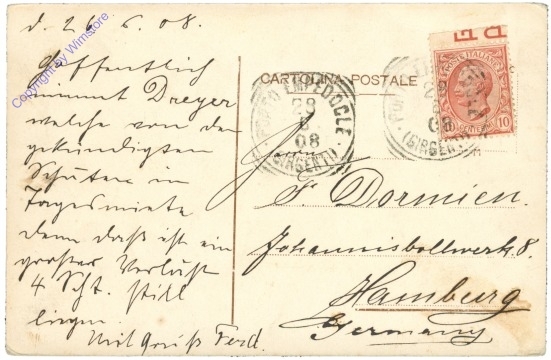 d. 26.6.08.
Copyright by Wimstore
Hoffentlich
nimmt Dreyer
welche von den
gekündigten
Schuten in
Tagesmiete
denn daß ist ein
großer Verlust
4 Scht. still
liegen
Mit Gruß Ferd.
CARTOLINA POSTALE
POSTE ITALIANE
10
PORTO EMPEDOCLE
28
6
08
(GIRGENTI)
28
08
(GIRGENTI)
F. Dormien.
Johannisbollwerk 8.
Hamburg
Germany